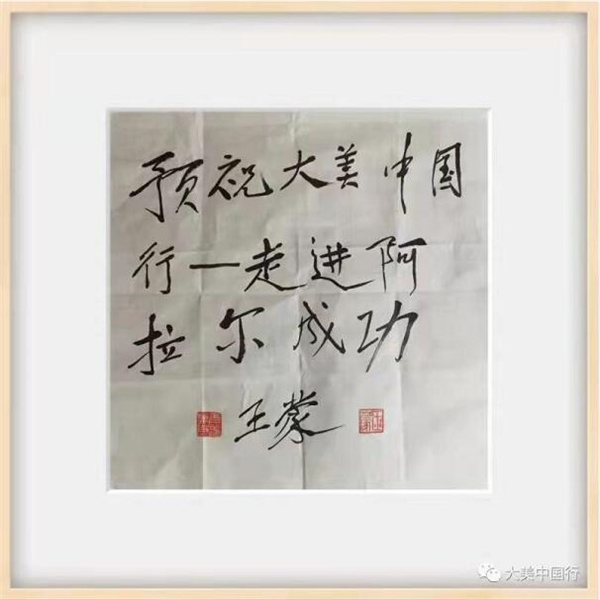 预祝大美中国
行—走进阿
拉尔成功
王蒙
大美中国行